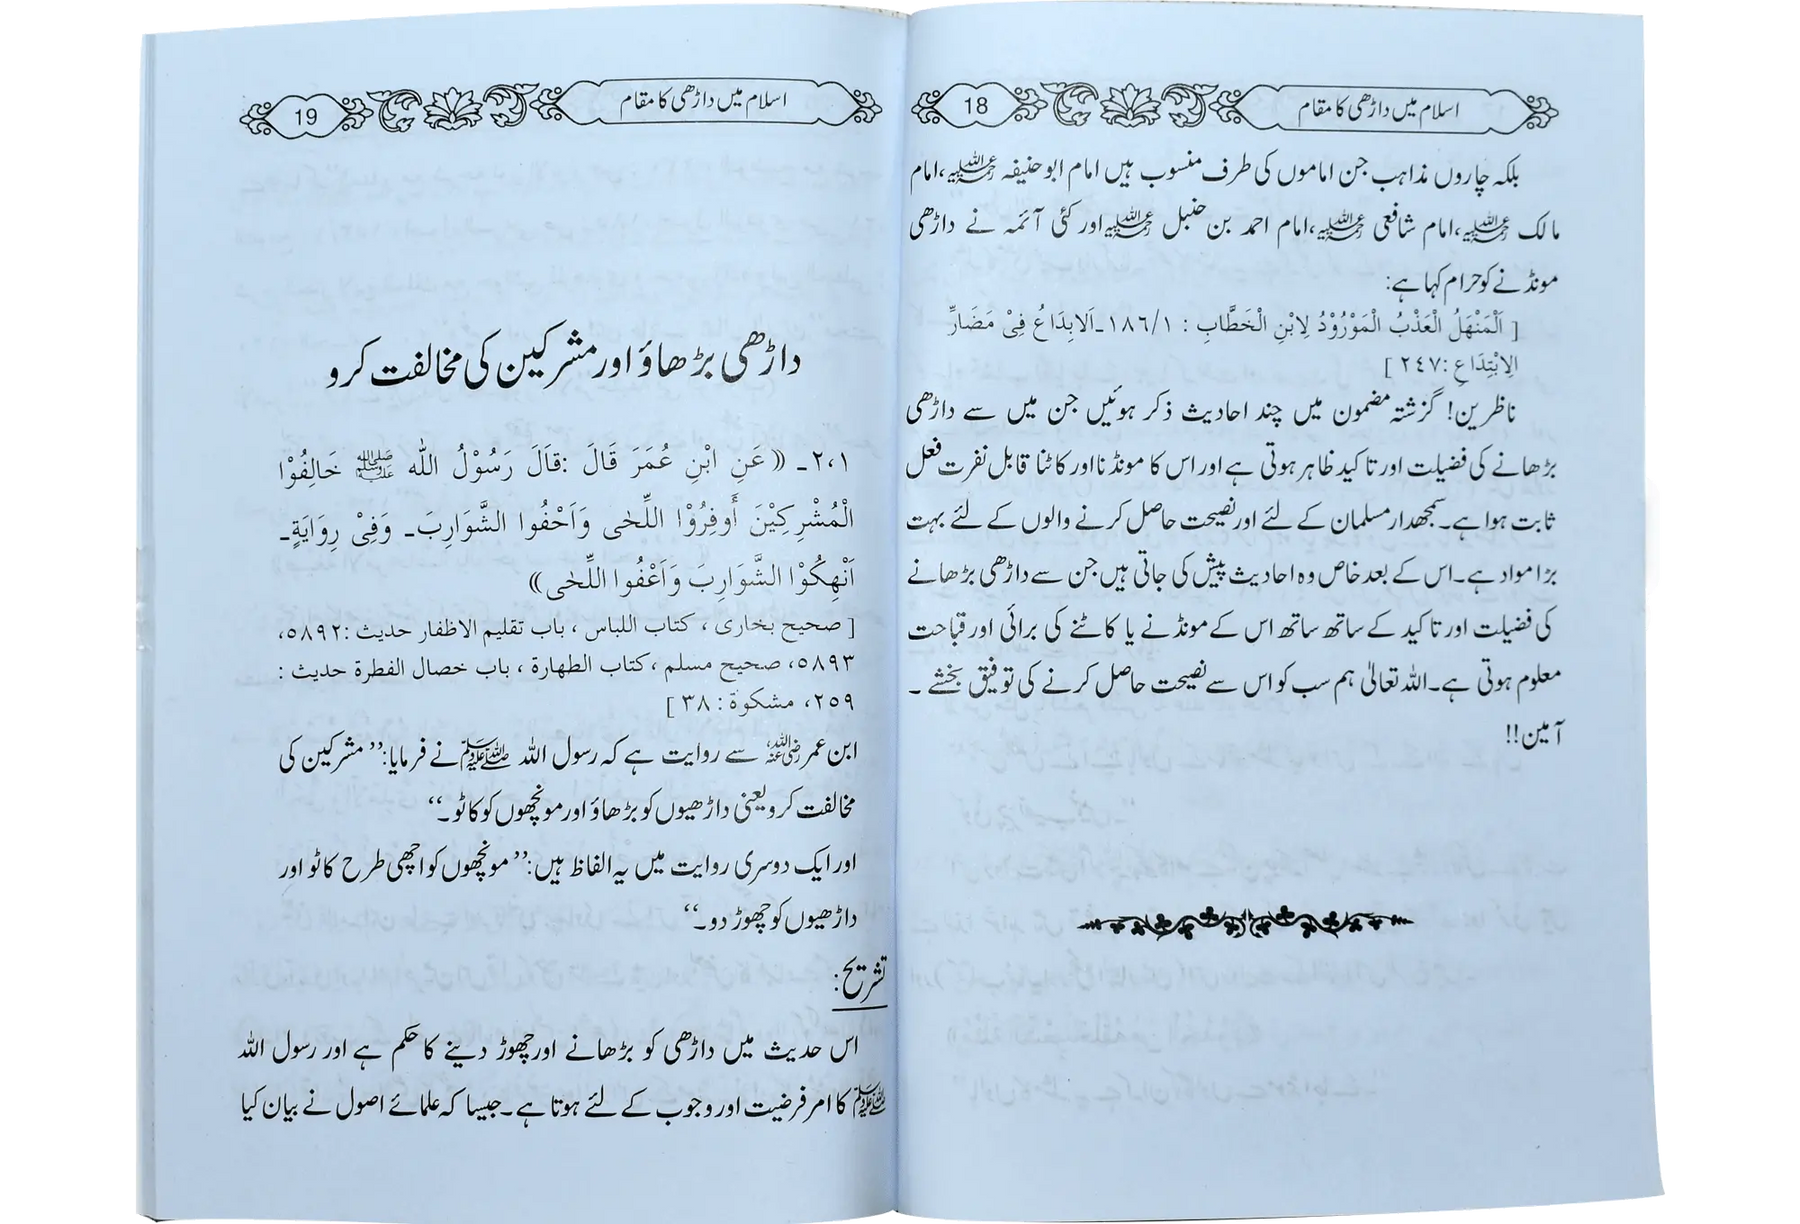 اسلام میں داڑھی کا مقام
18
بلکہ چاروں مذاہب جن اماموں کی طرف منسوب ہیں امام ابوحنیفہ رحمۃ اللہ علیہ، امام
مالک رحمۃ اللہ علیہ، امام شافعی رحمۃ اللہ علیہ، امام احمد بن حنبل رحمۃ اللہ علیہ اور کئی آئمہ نے داڑھی
مونڈنے کو حرام کہا ہے:
[ اَلْمَنْهَلُ الْعَذْبُ الْمَوْرُوْدُ لِابْنِ الْخَطَّابِ : ١٨٦/١۔ اَلاِبِدَاعُ فِیْ مَضَارِّ
الِابْتِدَاعِ :٢٤٧ ]
ناظرین! گزشتہ مضمون میں چند احادیث ذکر ہوئیں جن میں سے داڑھی
بڑھانے کی فضیلت اور تاکید ظاہر ہوتی ہے اور اس کا مونڈنا اور کاٹنا قابل نفرت فعل
ثابت ہوا ہے۔ سمجھدار مسلمان کے لئے اور نصیحت حاصل کرنے والوں کے لئے بہت
بڑا مواد ہے۔ اس کے بعد خاص وہ احادیث پیش کی جاتی ہیں جن سے داڑھی بڑھانے
کی فضیلت اور تاکید کے ساتھ ساتھ اس کے مونڈنے یا کاٹنے کی برائی اور قباحت
معلوم ہوتی ہے۔ اللہ تعالیٰ ہم سب کو اس سے نصیحت حاصل کرنے کی توفیق بخشے ۔
آمین!!
اسلام میں داڑھی کا مقام
19
داڑھی بڑھاؤ اور مشرکین کی مخالفت کرو
٢،١۔ (( عَنِ ابْنِ عُمَرَ قَالَ :قَالَ رَسُوْلُ اللّٰه ﷺ خَالِفُوْا
الْمُشْرِكِيْنَ أَوفِرُوْا اللِّحٰی وَاَحْفُوا الشَّوَارِبَ۔ وَفِیْ رِوَايَةٍ۔
اَنْهِكُوْا الشَّوَارِبَ وَاَعْفُوا اللِّحٰی))
[ صحیح بخاری ، کتاب اللباس ، باب تقلیم الاظفار حدیث :٥٨٩٢،
٥٨٩٣، صحیح مسلم ،کتاب الطهارة ، باب خصال الفطرة حدیث :
٢٥٩، مشکوة : ٣٨ ]
ابن عمر رضی اللہ عنہ سے روایت ہے کہ رسول اللہ ﷺ نے فرمایا:’’ مشرکین کی
مخالفت کرو یعنی داڑھیوں کو بڑھاؤ اور مونچھوں کو کاٹو۔‘‘
اور ایک دوسری روایت میں یہ الفاظ ہیں:’’ مونچھوں کو اچھی طرح کاٹو اور
داڑھیوں کو چھوڑ دو۔‘‘
تشریح:
اس حدیث میں داڑھی کو بڑھانے اور چھوڑ دینے کا حکم ہے اور رسول اللہ
ﷺ کا امر فرضیت اور وجوب کے لئے ہوتا ہے۔ جیسا کہ علمائے اصول نے بیان کیا